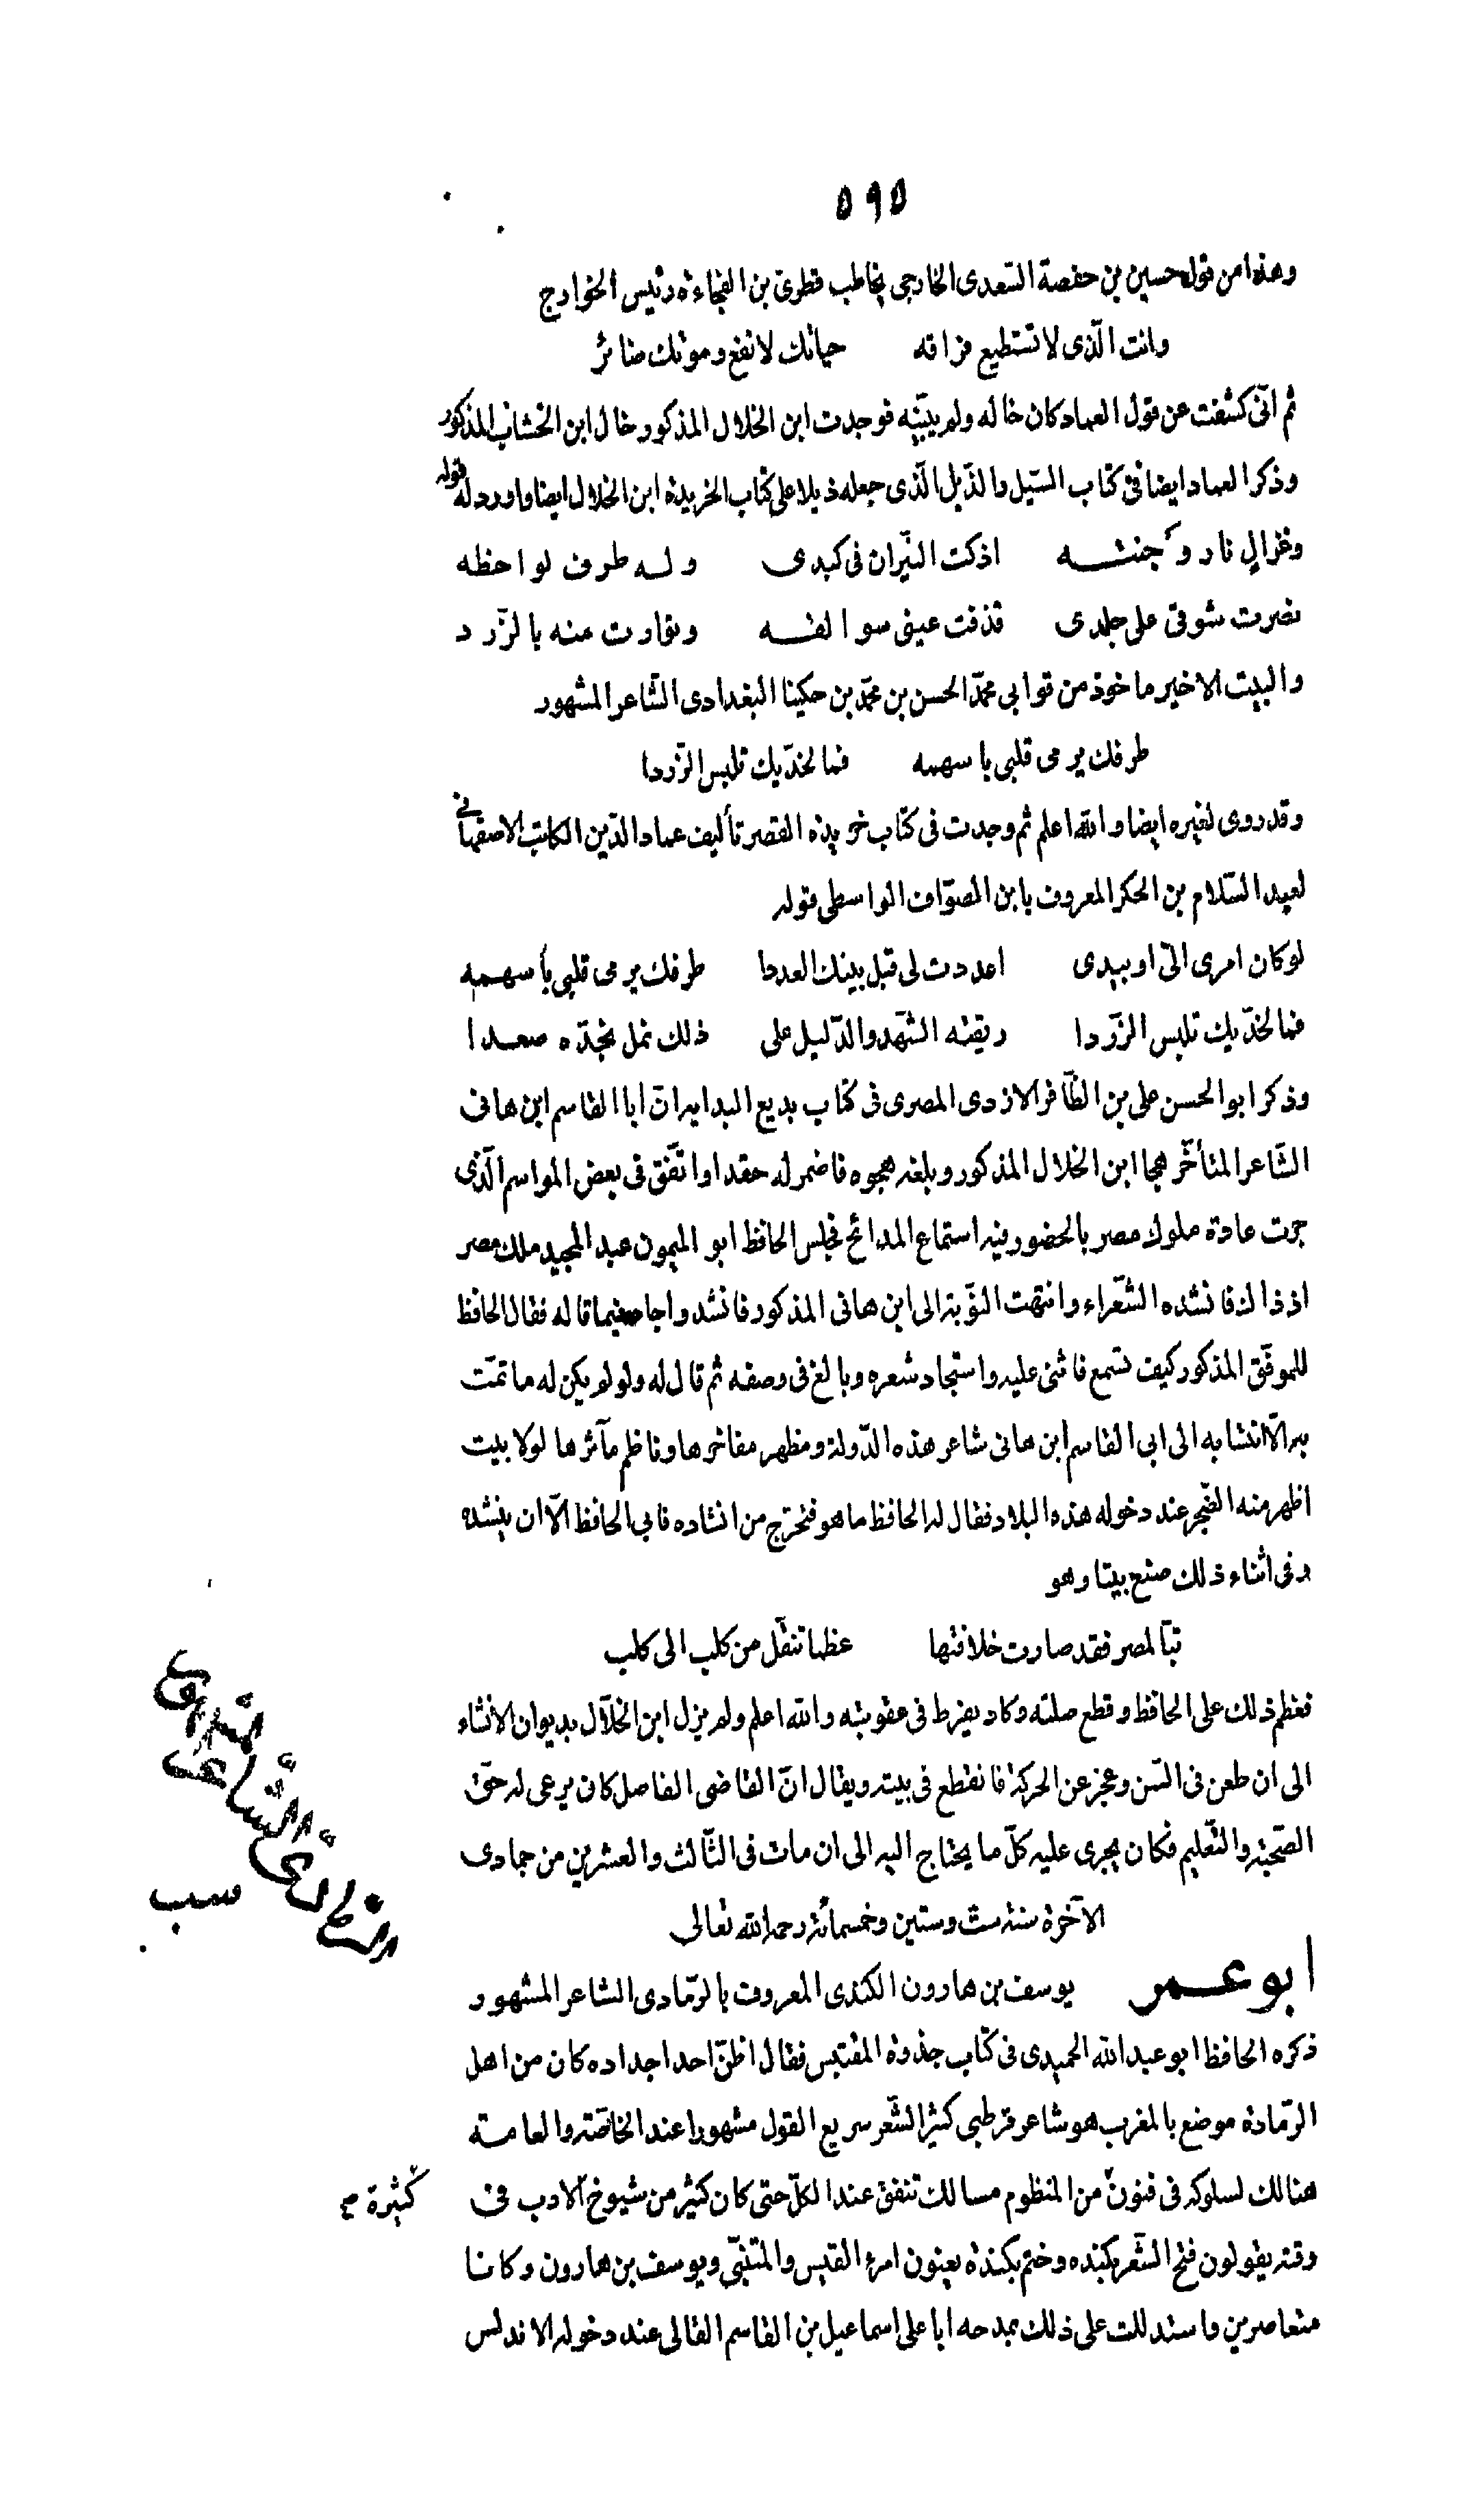 ٥٩٥
وهذا من قول حسين بن حفصة السّعدى الخارجى يخاطب قطرىّ بن الفجاءة رئيس الخوارج
وانت الّذى لا تستطيع فراقه حياتك لا نفع وموتك ضائر
ثم انّى كشفت عن قول العماد كان خاله ولم يبيّنه فوجدت ابن الخلال المذكور خال ابن الخشاب المذكور
وذكر العماد ايضا فى كتاب السّيل والذّيل الّذى جعله ذيلا على كتاب الخريدة ابن الخلال ايضا واورد له قوله
وغزالٍ نار وجنته اذكت النّيران فى كبدى وله طرف لواحظه
نصرت شوقى على جلدى قذفت عينى سوالفه وتوارت منه بالزّرد
والبيت الاخير ماخوذ من قو ابى محمّد الحسن بن محمّد بن حكينا البغدادى الشّاعر المشهور
طرفك يرمى قلبى باسهمه فما لخدّيك تلبس الزّردا
وقد روى لغيره ايضا والله اعلم ثم وجدت فى كتاب خريدة القصر تأليف عماد الدّين الكاتب الاصفهانى
لعبد السّلام بن الحكر المعروف بابن الصوّاف الواسطى قوله
لو كان امرى الىّ او بيدى اعددت لى قبل بينك العددا طرفك يرمى قلبى بأسهمه
فما لخدّيك تلبس الزّردا ريقته الشّهد والدّليل على ذلك نمل بخدّه صعدا
وذكر ابو الحسن على بن الظّافر الازدى المصرى فى كتاب بديع البدايه انّ ابا القاسم ابن هانى
الشّاعر المتأخّر هجا ابن الخلال المذكور وبلغه هجوه فاضمر له حقدا واتّفق فى بعض المواسم الّذى
جرت عادة ملوك مصر بالحضور فيه استماع المدائح فجلس الحافظ ابو الميمون عبد المجيد ملك مصر
اذ ذاك فانشده الشّعراء وانتهت النّوبة الى ابن هانى المذكور فانشد واجاد فيما قاله فقال الحافظ
للموفّق المذكور كيف تسمع فاثنى عليه واستجاد شعره وبالغ فى وصفه ثم قال له ولو لم يكن له ما تمّت
به الّا انتسابه الى ابى القاسم ابن هانى شاعر هذه الدّولة ومظهر مفاخرها وناظم مآثرها لولا بيت
اظهر منه الضّجر عند دخوله هذه البلاد فقال له الحافظ ما هو فتحرّج من انشاده فابى الحافظ الّا ان ينشده
وفى اثناء ذلك صنع بيتا وهو
تبّا لمصر فقد صارت خلافتها عظما تنقّل من كلب الى كلب
فعظم ذلك على الحافظ وقطع صلته وكاد يفرط فى عقوبته والله اعلم ولم يزل ابن الخلّال بديوان الانشاء
الى ان طعن فى السّن وعجز عن الحركة فانقطع فى بيته ويقال انّ القاضى الفاضل كان يرعى له حقّ
الصّحبة والتّعليم فكان يجرى عليه كلّ ما يحتاج اليه الى ان مات فى الثّالث والعشرين من جمادى
الآخرة سنة ستّ وستين وخمسمائة رحمه الله تعالى
ابو عمر يوسف بن هارون الكندى المعروف بالرّمادى الشاعر المشهور
ذكره الحافظ ابو عبد الله الحميدى فى كتاب جذوة المقتبس فقال اظنّ احد اجداده كان من اهل
الرّمادة موضع بالمغرب هو شاعر قرطبى كثير الشّعر سريع القول مشهورا عند الخاصّة والعامة
هنالك لسلوكه فى فنون من المنظوم مسالك تنفق عند الكلّ حتى كان كثير من شيوخ الادب فى
كثيرة صح
وقته يقولون فتح الشّعر بكنده وختم بكندة يعنون امرء القيس والمتنبّى ويوسف بن هارون وكانا
متعاصرين واستدللت على ذلك بمدحه ابا على اسماعيل بن القاسم القالى عند دخوله الاندلس